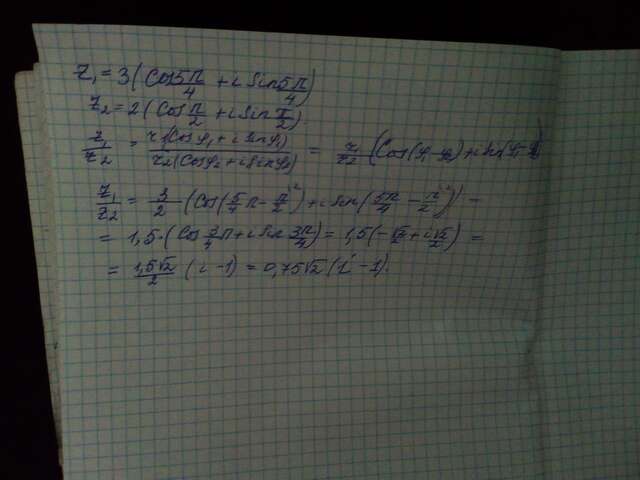 z₁ = 3(Cos 5π/4 + i Sin 5π/4)
z₂ = 2(Cos π/2 + i Sin π/2)
z₁/z₂ = r₁(Cosφ₁ + i Sinφ₁)/r₂(Cosφ₂ + i Sinφ₂) = r₁/r₂ (Cos(φ₁-φ₂) + i Sin(φ₁-φ₂))
z₁/z₂ = 3/2 (Cos(5/4 π - π/2 ²) + i Sin(5π/4 - π/2 ²)) =
= 1,5·(Cos 3/4 π + i Sin 3π/4) = 1,5(-√2/2 + i √2/2) =
= 1,5√2/2 (i - 1) = 0,75√2 (i - 1).